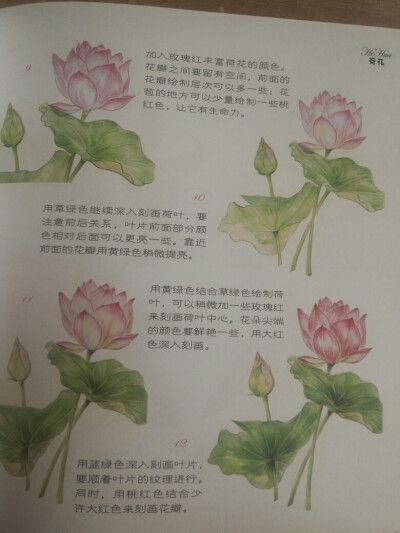 He Hua
荷花
9
加入玫瑰红丰富荷花的颜色。
花瓣之间要留有空间，前面的
花瓣绘制层次可以多一些；花
苞的地方可以少量绘制一些桃
红色，让它有生命力。
10
用草绿色继续深入刻画荷叶，要
注意前后关系，叶片前面部分颜
色相对后面可以更亮一些。靠近
前面的花瓣用黄绿色稍微提亮。
11
用黄绿色结合草绿色绘制荷
叶，可以稍微加一些玫瑰红
来刻画荷叶中心。花朵尖端
的颜色要鲜艳一些，用大红
色深入刻画。
12
用蓝绿色深入刻画叶片，
要顺着叶片的纹理进行。
同时，用桃红色结合少
许大红色来刻画花瓣。